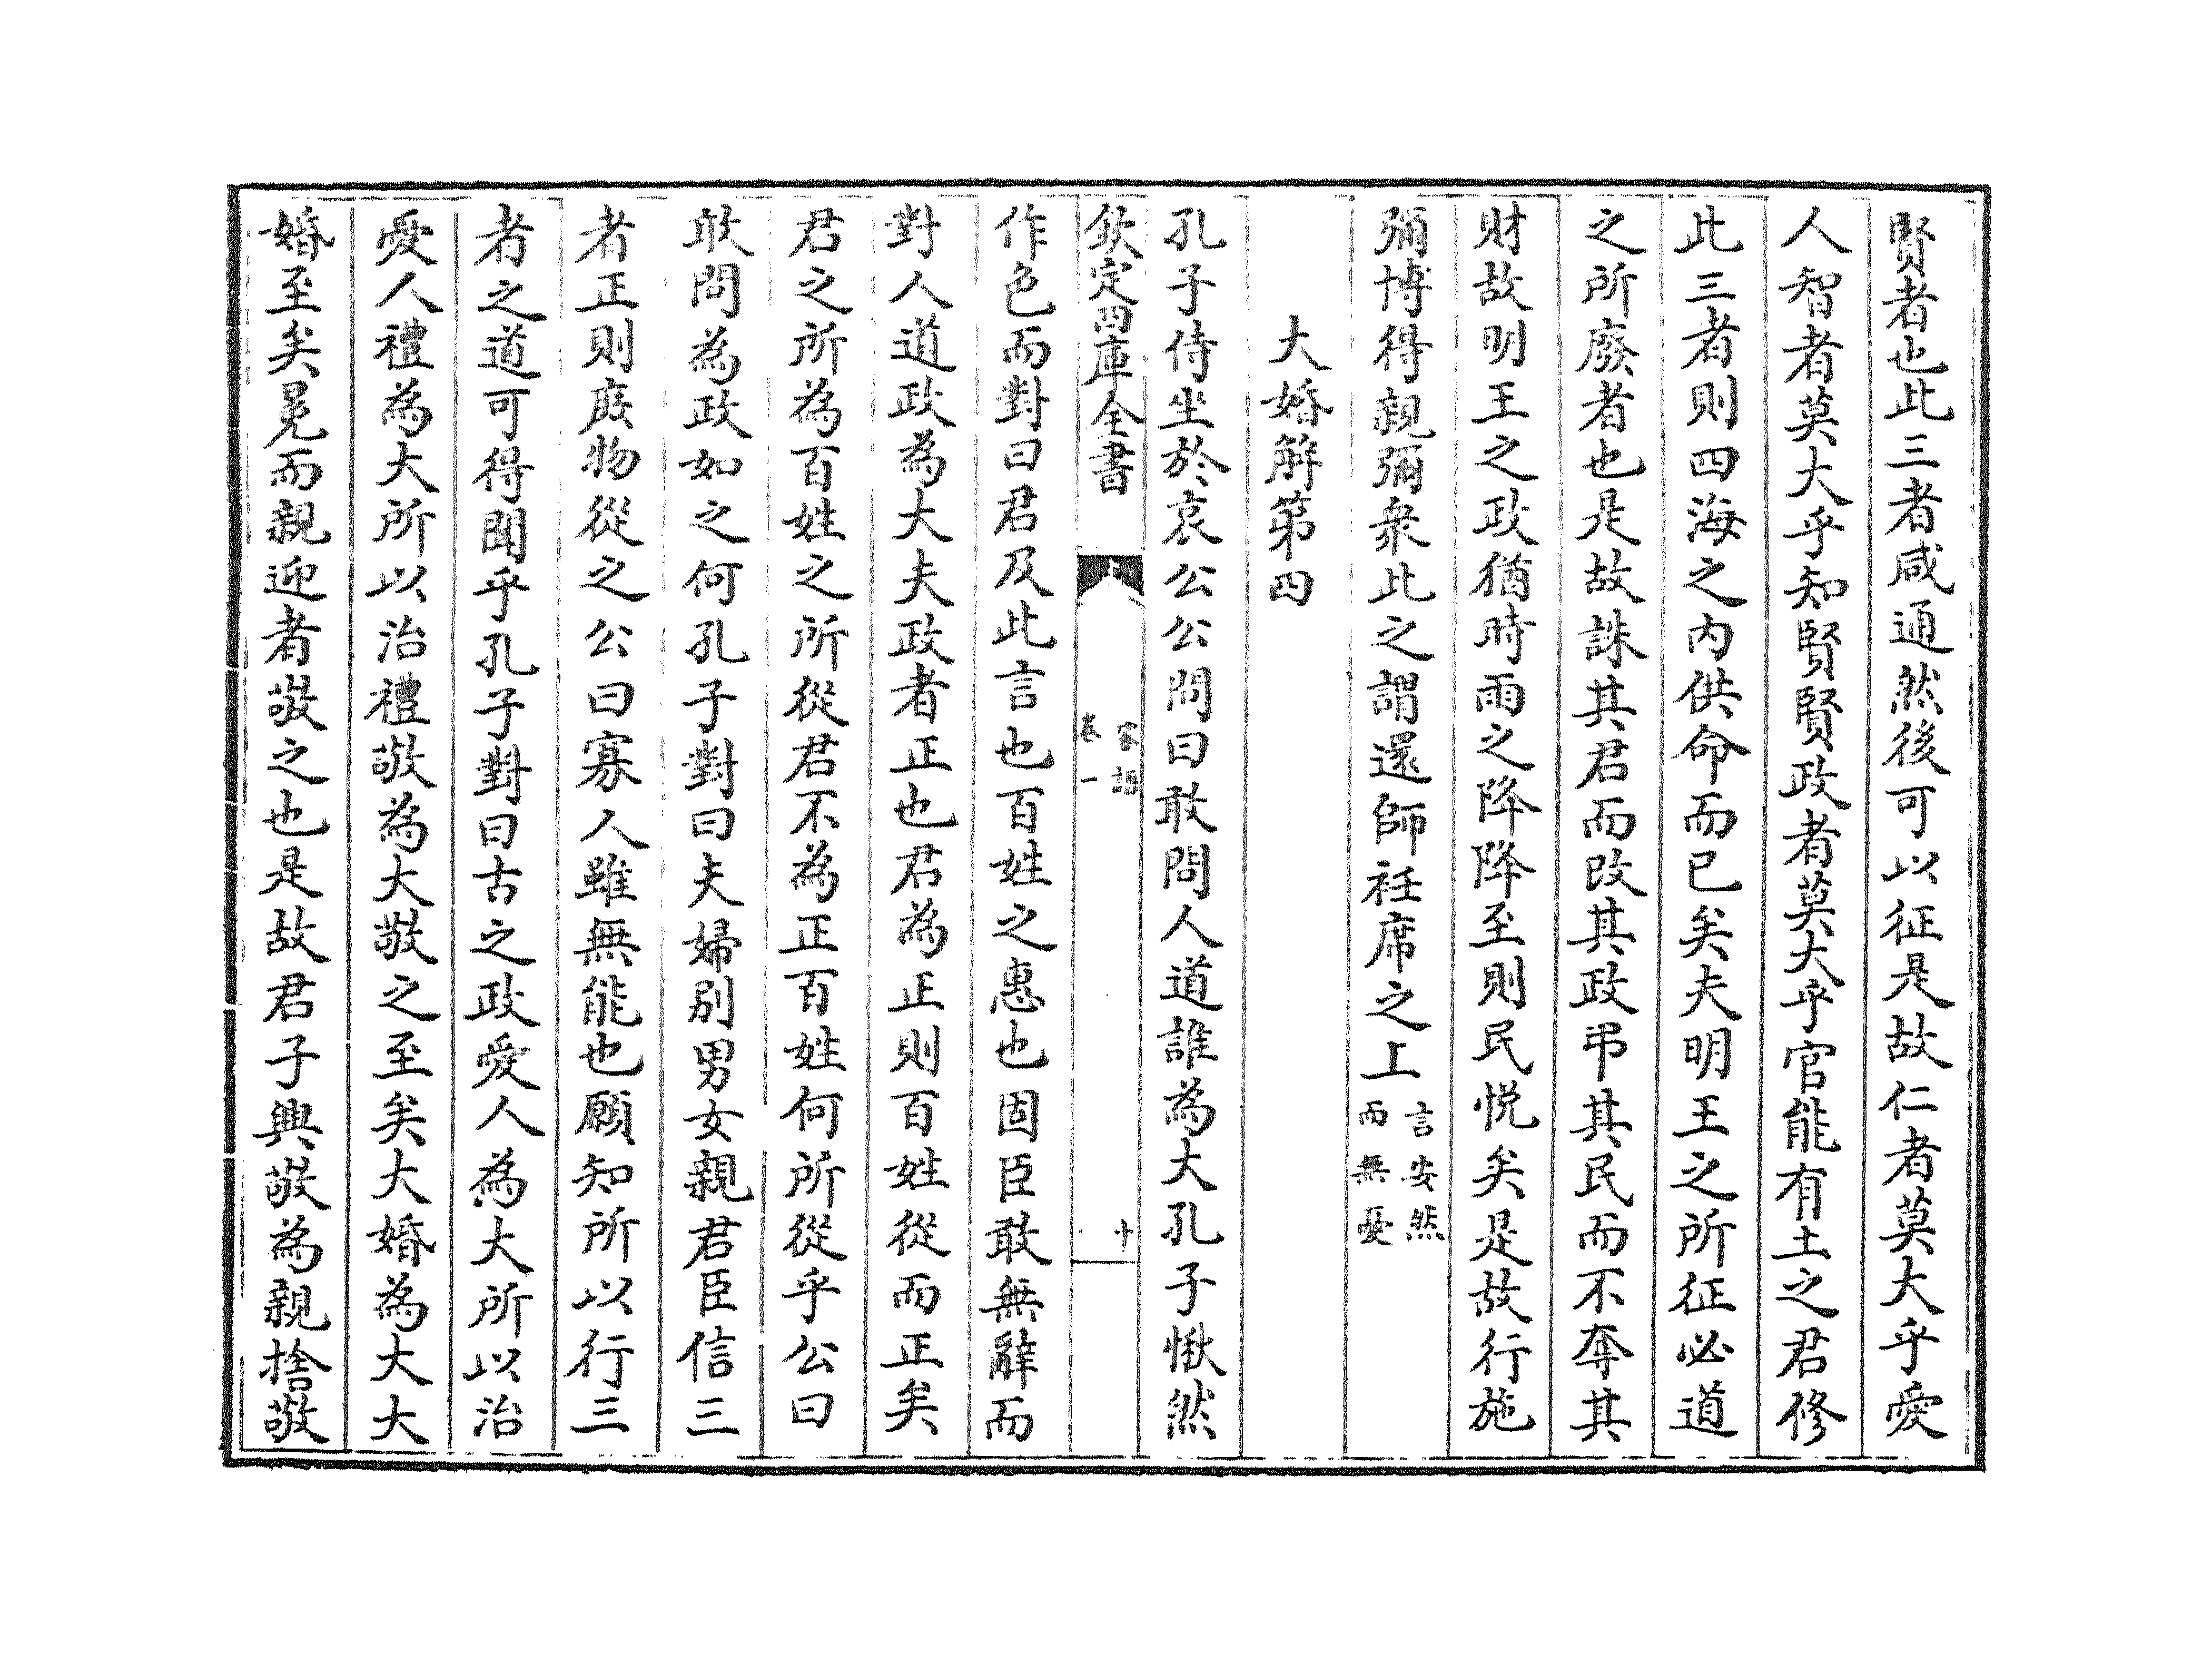 賢者也此三者咸通然後可以征是故仁者莫大乎愛
人智者莫大乎知賢賢政者莫大乎官能有土之君修
此三者則四海之内供命而已矣夫明王之所征必道
之所廢者也是故誅其君而改其政弔其民而不奪其
財故明王之政猶時雨之降降至則民悦矣是故行施
彌博得親彌衆此之謂還師衽席之上言安然
而無憂
大婚解第四
孔子侍坐於哀公公問曰敢問人道誰為大孔子愀然
欽定四庫全書
家語
卷一
十
作色而對曰君及此言也百姓之惠也固臣敢無辭而
對人道政為大夫政者正也君為正則百姓從而正矣
君之所為百姓之所從君不為正百姓何所從乎公曰
敢問為政如之何孔子對曰夫婦别男女親君臣信三
者正則庶物從之公曰寡人雖無能也願知所以行三
者之道可得聞乎孔子對曰古之政愛人為大所以治
愛人禮為大所以治禮敬為大敬之至矣大婚為大大
婚至矣冕而親迎者敬之也是故君子興敬為親捨敬